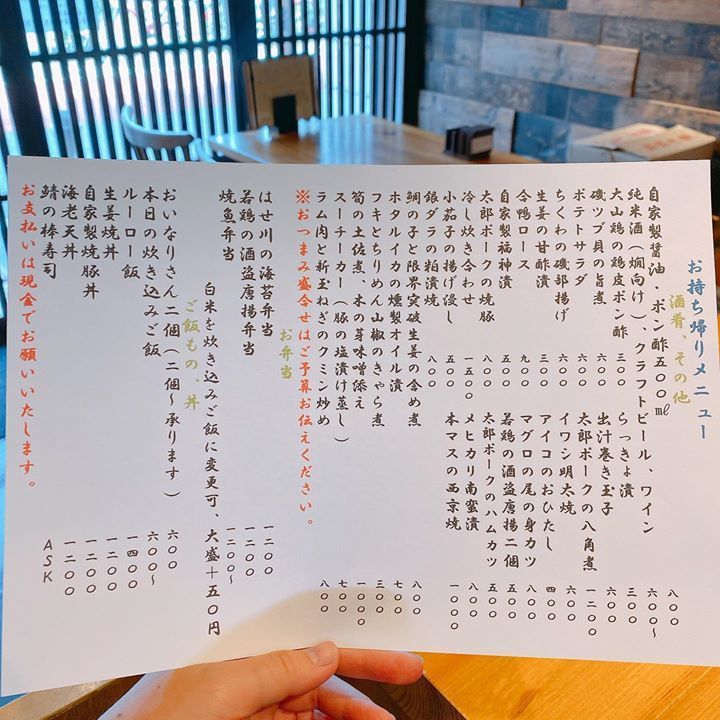 お持ち帰りメニュー
酒肴、その他
自家製醤油・ポン酢五〇〇㎖
純米酒（燗向け）、クラフトビール、ワイン
大山鶏の鶏皮ポン酢 三〇〇
らっきょ漬 三〇〇
磯ツブ貝の旨煮 六〇〇
出汁巻き玉子 六〇〇
ポテトサラダ 六〇〇
太郎ポークの八角煮 一二〇〇
ちくわの磯部揚げ 六〇〇
イワシ明太焼 六〇〇
生姜の甘酢漬 三〇〇
アイコのおひたし 四〇〇
合鴨ロース 九〇〇
マグロの尾の身カツ 八〇〇
自家製福神漬 五〇〇
若鶏の酒盗唐揚二個 五〇〇
太郎ポークの焼豚
太郎ポークのハムカツ 五〇〇
冷し炊き合わせ 一五〇〇
メヒカリ南蛮漬 八〇〇
小茄子の揚げ浸し 五〇〇
本マスの西京焼 一〇〇〇
銀ダラの粕漬焼 八〇〇
鯛の子と限界突破生姜の含め煮 八〇〇
ホタルイカの燻製オイル漬 七〇〇
フキとちりめん山椒のきゃら煮 三〇〇
筍の土佐煮、木の芽味噌添え 一〇〇〇
スーチーカー（豚の塩漬け蒸し） 七〇〇
ラム肉と新玉ねぎのクミン炒め 八〇〇
※おつまみ盛合せはご予算お伝えください。
お弁当
はせ川の海苔弁当 一二〇〇
若鶏の酒盗唐揚弁当 一二〇〇
焼魚弁当 一二〇〇〜
白米を炊き込みご飯に変更可、大盛＋五〇円
ご飯もの、丼
おいなりさん二個（二個〜承ります） 六〇〇
本日の炊き込みご飯 六〇〇〜
ルーロー飯 一四〇〇
生姜焼丼 一二〇〇
自家製焼豚丼 一二〇〇
海老天丼 一二〇〇
鯖の棒寿司 ASK
お支払いは現金でお願いいたします。